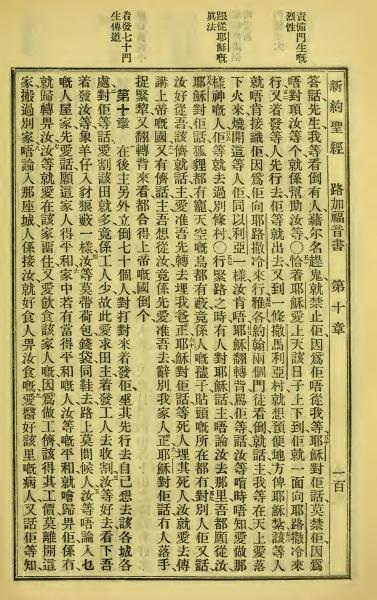 責備門生嘅
烈性
跟從耶穌嘅
眞法
着發七十門
生傳道
新約聖經 路加福音書 第十章 一百
答話先生我等看倒有人藉尔名趕鬼就禁止佢因爲佢唔從我等耶穌對佢話莫禁佢因爲
唔對頂汝等个就係幫助汝等○恰着耶穌愛上天該日子上下到佢就一面向耶路撒冷來
行又着發等人先行去佢等就出去又到一條撒馬利亞村就想預便地方俾耶穌紮該等人
就唔肯接識佢因爲佢向耶路撒冷來行雅各約翰兩個門徒看倒就話主我等在天上愛落
下火來燒開這等人佢同以利亞一樣汝肯唔耶穌翻轉背罵佢等話汝等唔時唔知愛做那
樣神嘅人佢等就去過別條村○行緊路之時有人對耶穌話主唔論汝去那里吾都願從汝
耶穌對佢話狐狸都有窿天空嘅鳥都有藪竟係人嘅孻子貼頭嘅所在都冇對別人佢又話
汝好從吾該儕就話主愛准吾先轉去埋我爸正耶穌對佢話等死人埋其死人汝就愛去傳
講上帝嘅國又有儕話主吾想從汝竟係先愛准吾去辭別我家人正耶穌對佢話有人落手
捉緊犂又翻轉背來看都合得上帝嘅國倒个
第十章 在後主另外立倒七十個人對打對來着發佢兠其先行去自己想去該各城各
處對佢等話愛割該田就多竟係工人少故此愛求田主着發工人去收割汝等好去看下吾
着發汝等象羊仔入豺狼藪一樣汝等莫帶荷包錢袋同鞋去路上莫問候人汝等唔論入乜
嘅人屋家先愛話願這家人得平和家中若有當得平和嘅人汝等嘅平和就噲歸畀佢係冇
就歸轉畀汝等就愛在該家畱住又愛飲食該家人嘅因爲做工儕該得其工價莫離開這
家搬過別家唔論入那座城人係接汝就好食人畀汝食嘅愛醫好該里嘅病人又話佢等知